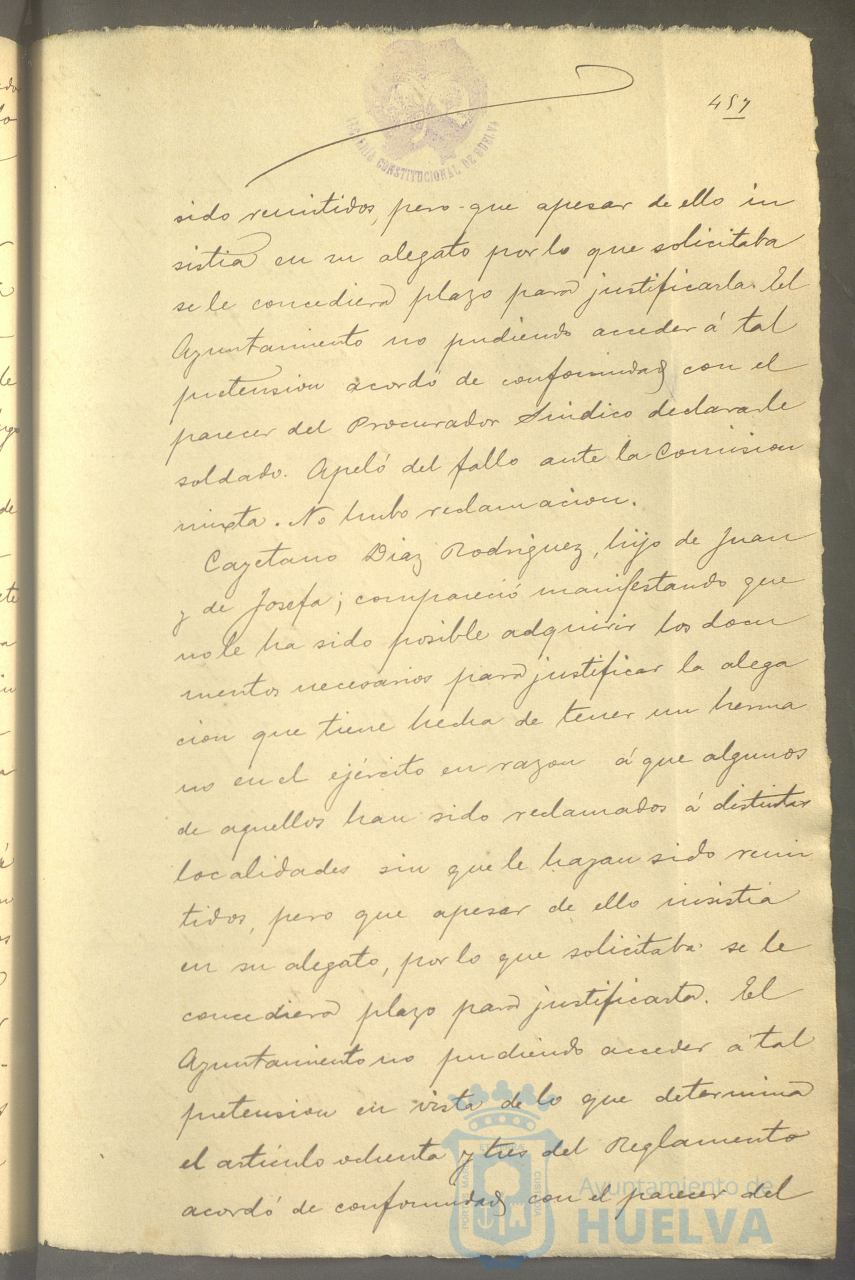 457
ALCALDIA CONSTITUCIONAL DE HUELVA
sido remitidos, pero que apesar de ello in
sistia en su alegato por lo que solicitaba
se le concediera plazo para justificarla. El
Ayuntamiento no pudiendo acceder á tal
pretension acordó de conformidad con el
parecer del Procurador Sindico declararle
soldado. Apeló del fallo ante la Comision
mixta. No hubo reclamacion.
Cayetano Diaz Rodriguez, hijo de Juan
y de Josefa; compareció manifestando que
no le ha sido posible adquirir los docu
mentos necesarios para justificar la alega
cion que tiene hecha de tener un herma
no en el ejército en razon á que algunos
de aquellos han sido reclamados á distintas
localidades sin que le hayan sido remi
tidos, pero que apesar de ello insistia
en su alegato, por lo que solicitaba se le
concediera plazo para justificarla. El
Ayuntamiento no pudiendo acceder á tal
pretension en vista de lo que determina
el artículo ochenta y tres del Reglamento
acordó de conformidad con el parecer del
Ayuntamiento de
HUELVA